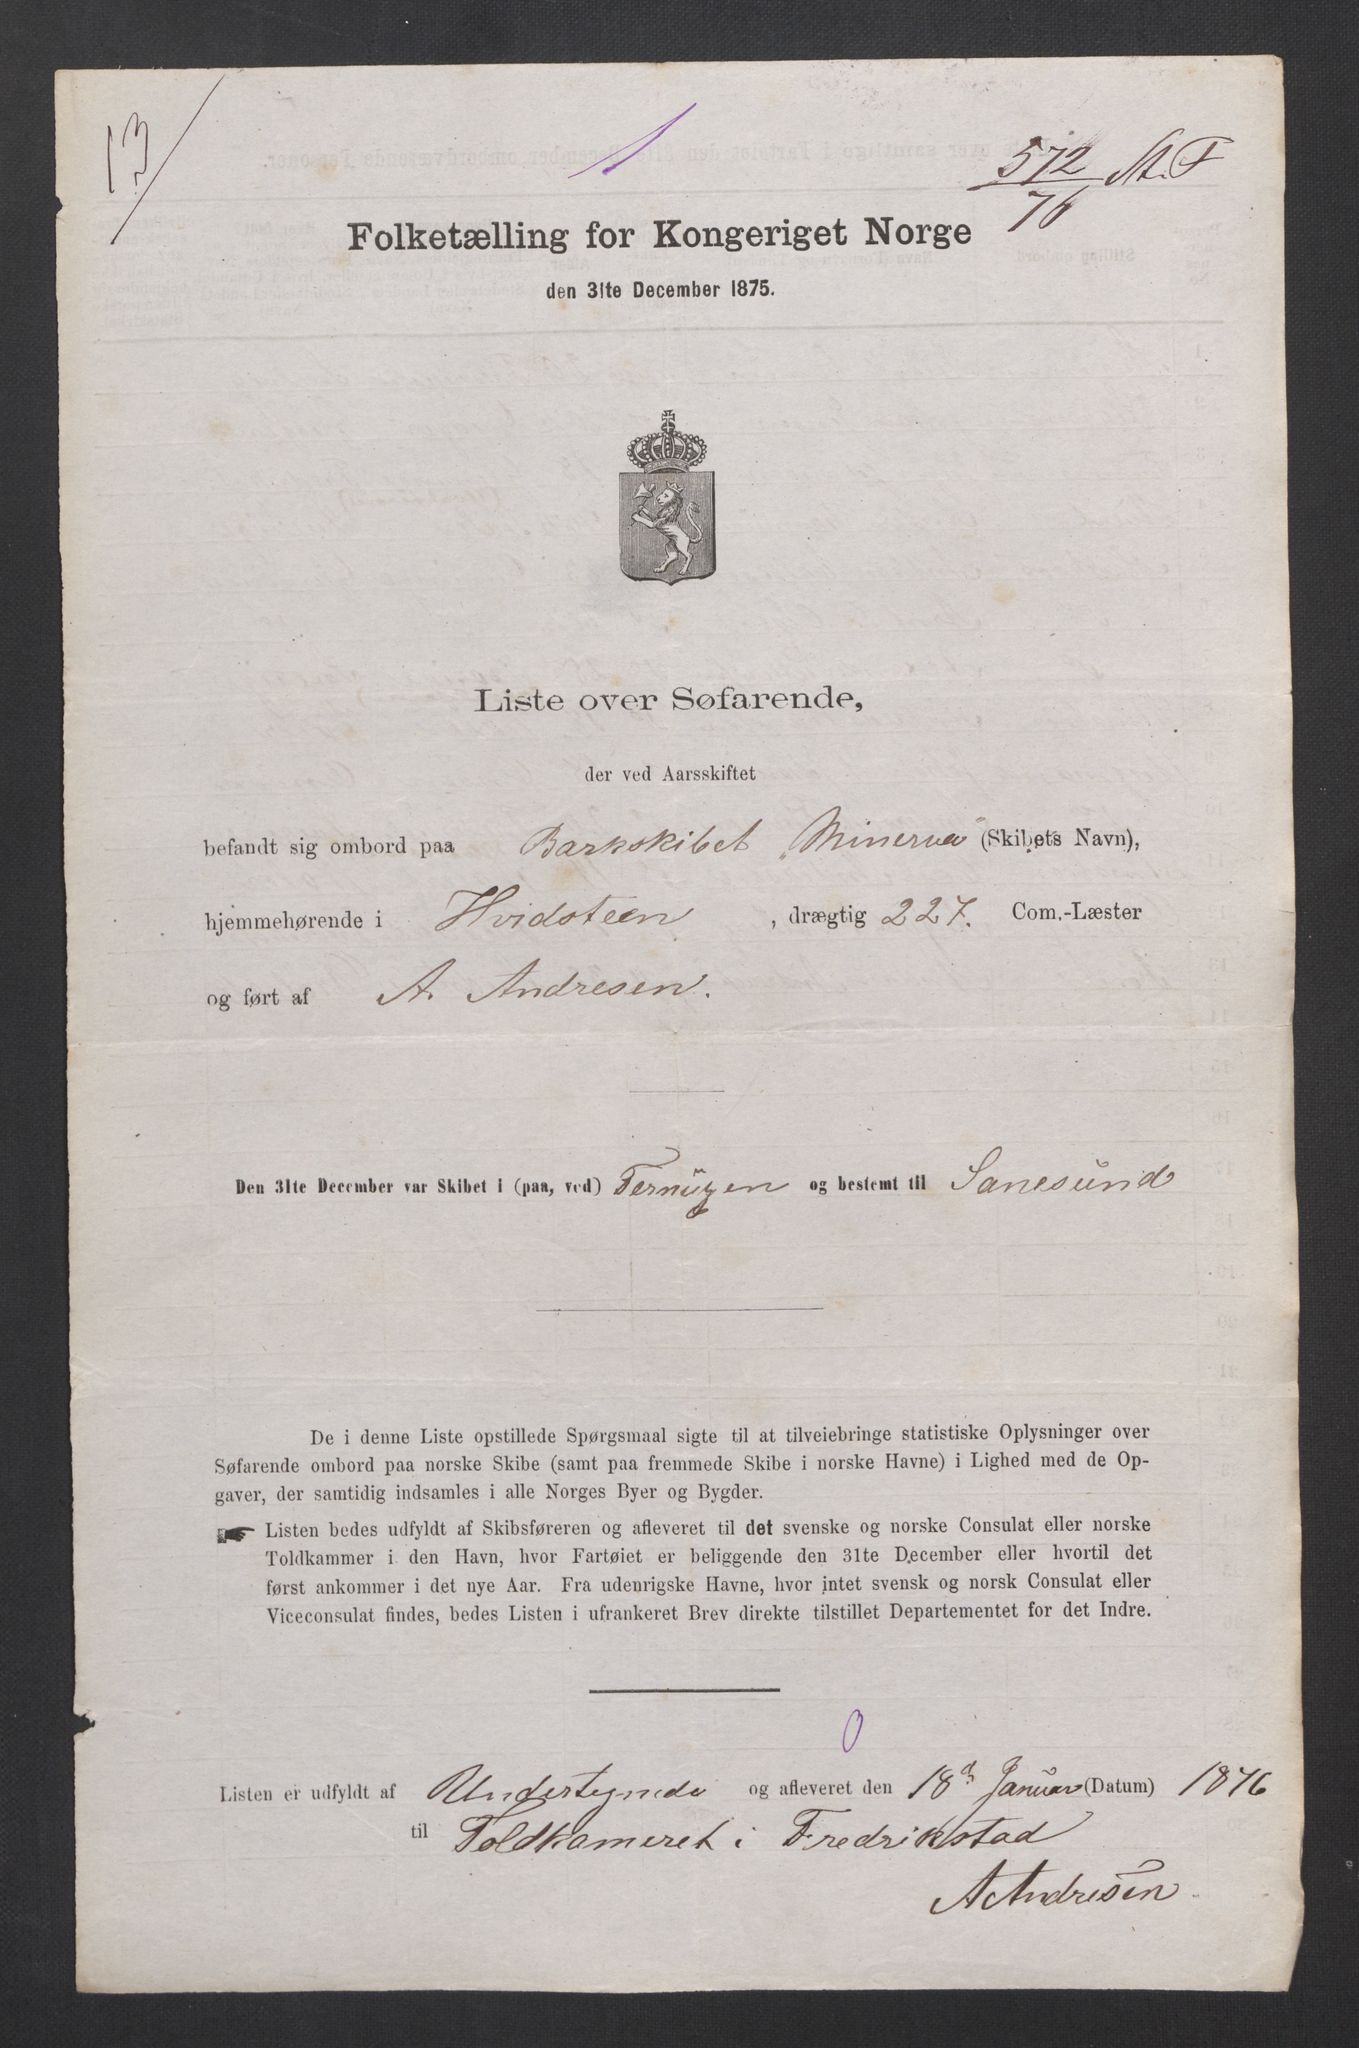 13
1
572
76
Folketælling for Kongeriget Norge
den 31te December 1875.
Liste over Søfarende,
der ved Aarsskiftet
befandt sig ombord paa Barkskibet „Minerva" (Skibets Navn),
hjemmehørende i Hvidsteen, drægtig 227. Com.-Læster
og ført af A. Andresen.
Den 31te December var Skibet i (paa, ved) og bestemt til Sanesund
De i denne Liste opstillede Spørgsmaal sigte til at tilveiebringe statistiske Oplysninger over
Søfarende ombord paa norske Skibe (samt paa fremmede Skibe i norske Havne) i Lighed med de Op-
gaver, der samtidig indsamles i alle Norges Byer og Bygder.
☛ Listen bedes udfyldt af Skibsføreren og afleveret til det svenske og norske Consulat eller norske
Toldkammer i den Havn, hvor Fartøiet er beliggende den 31te December eller hvortil det
først ankommer i det nye Aar. Fra udenrigske Havne, hvor intet svensk og norsk Consulat eller
Viceconsulat findes, bedes Listen i ufrankeret Brev direkte tilstillet Departementet for det Indre.
0
Listen er udfyldt af Undertegnede og afleveret den 18d Januar (Datum) 1876
til Toldkameret i Fredrikstad
A Andresen